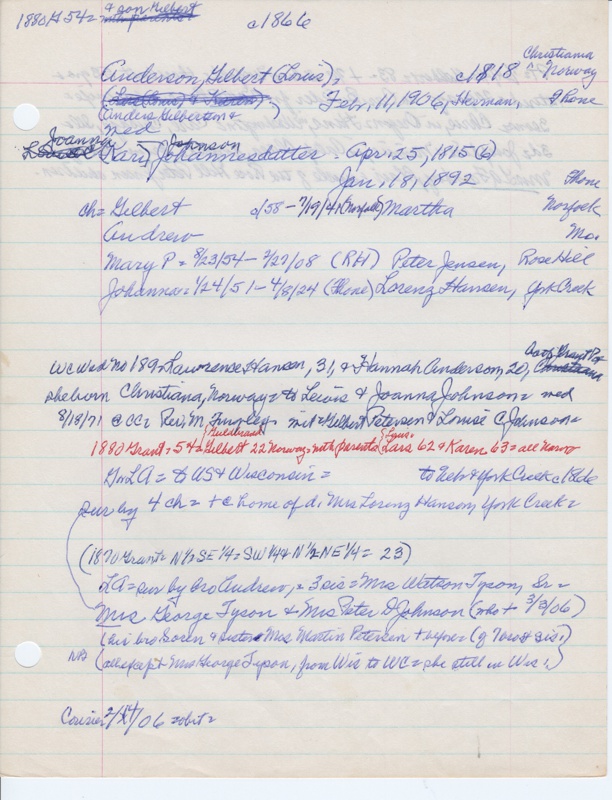 & son Gilbert
1880 Gr 54 = with parents c1866
Christiania
Anderson, Gilbert (Louis), c1818 Norway
Feb. 11, 1906, Herman, Fhone
(Anders Gilberton &
wed
Joanna Johnson
Kari Johannesdatter = Apr. 25, 1815 (6)
Jan. 18, 1892 Fhone
ch = Gilbert c/58 - 7/19/41 (Norfolk) Martha Norfolk
Andrew Mo.
Mary P = 8/23/54 - 2/27/08 (RH) Peter Jensen, Rose Hill
Johanna = 1/24/51 - 4/8/24 (Fhone) Lorenz Hansen, York Creek
WC Wed No 189 = Lawrence Hansen, 31, & Hannah Anderson, 20, Christiana
she born Christiana, Norway = to Lewis & Joanna Johnson = wed
8/18/71 @ CC = Rev. M. = wit = Gilbert Petersen & Louise C Johnson =
1880 Grant = 54 = Gilbert 22 Norway = with parents Lars 62 & Karen 63 = all Norw
Gr LA = to US & Wisconsin = to Nebr & York Creek c1866
sur by 4 ch = + @ home of d, Mrs Lorenz Hansen, York Creek =
(1870 Grant = N½ SE¼ = SW¼ & N½ NE¼ = 23)
LA = sur by bro Andrew, = 3 sis = Mrs Watson Tyson, Sr =
Mrs George Tyson & Mrs Peter D Johnson (who + 3/3/06)
bro. Soren & sister Mrs Martin Petersen
(all except Mrs George Tyson, from Wis to WC = she still in Wis.)
Courier 2/ /06 = obit =